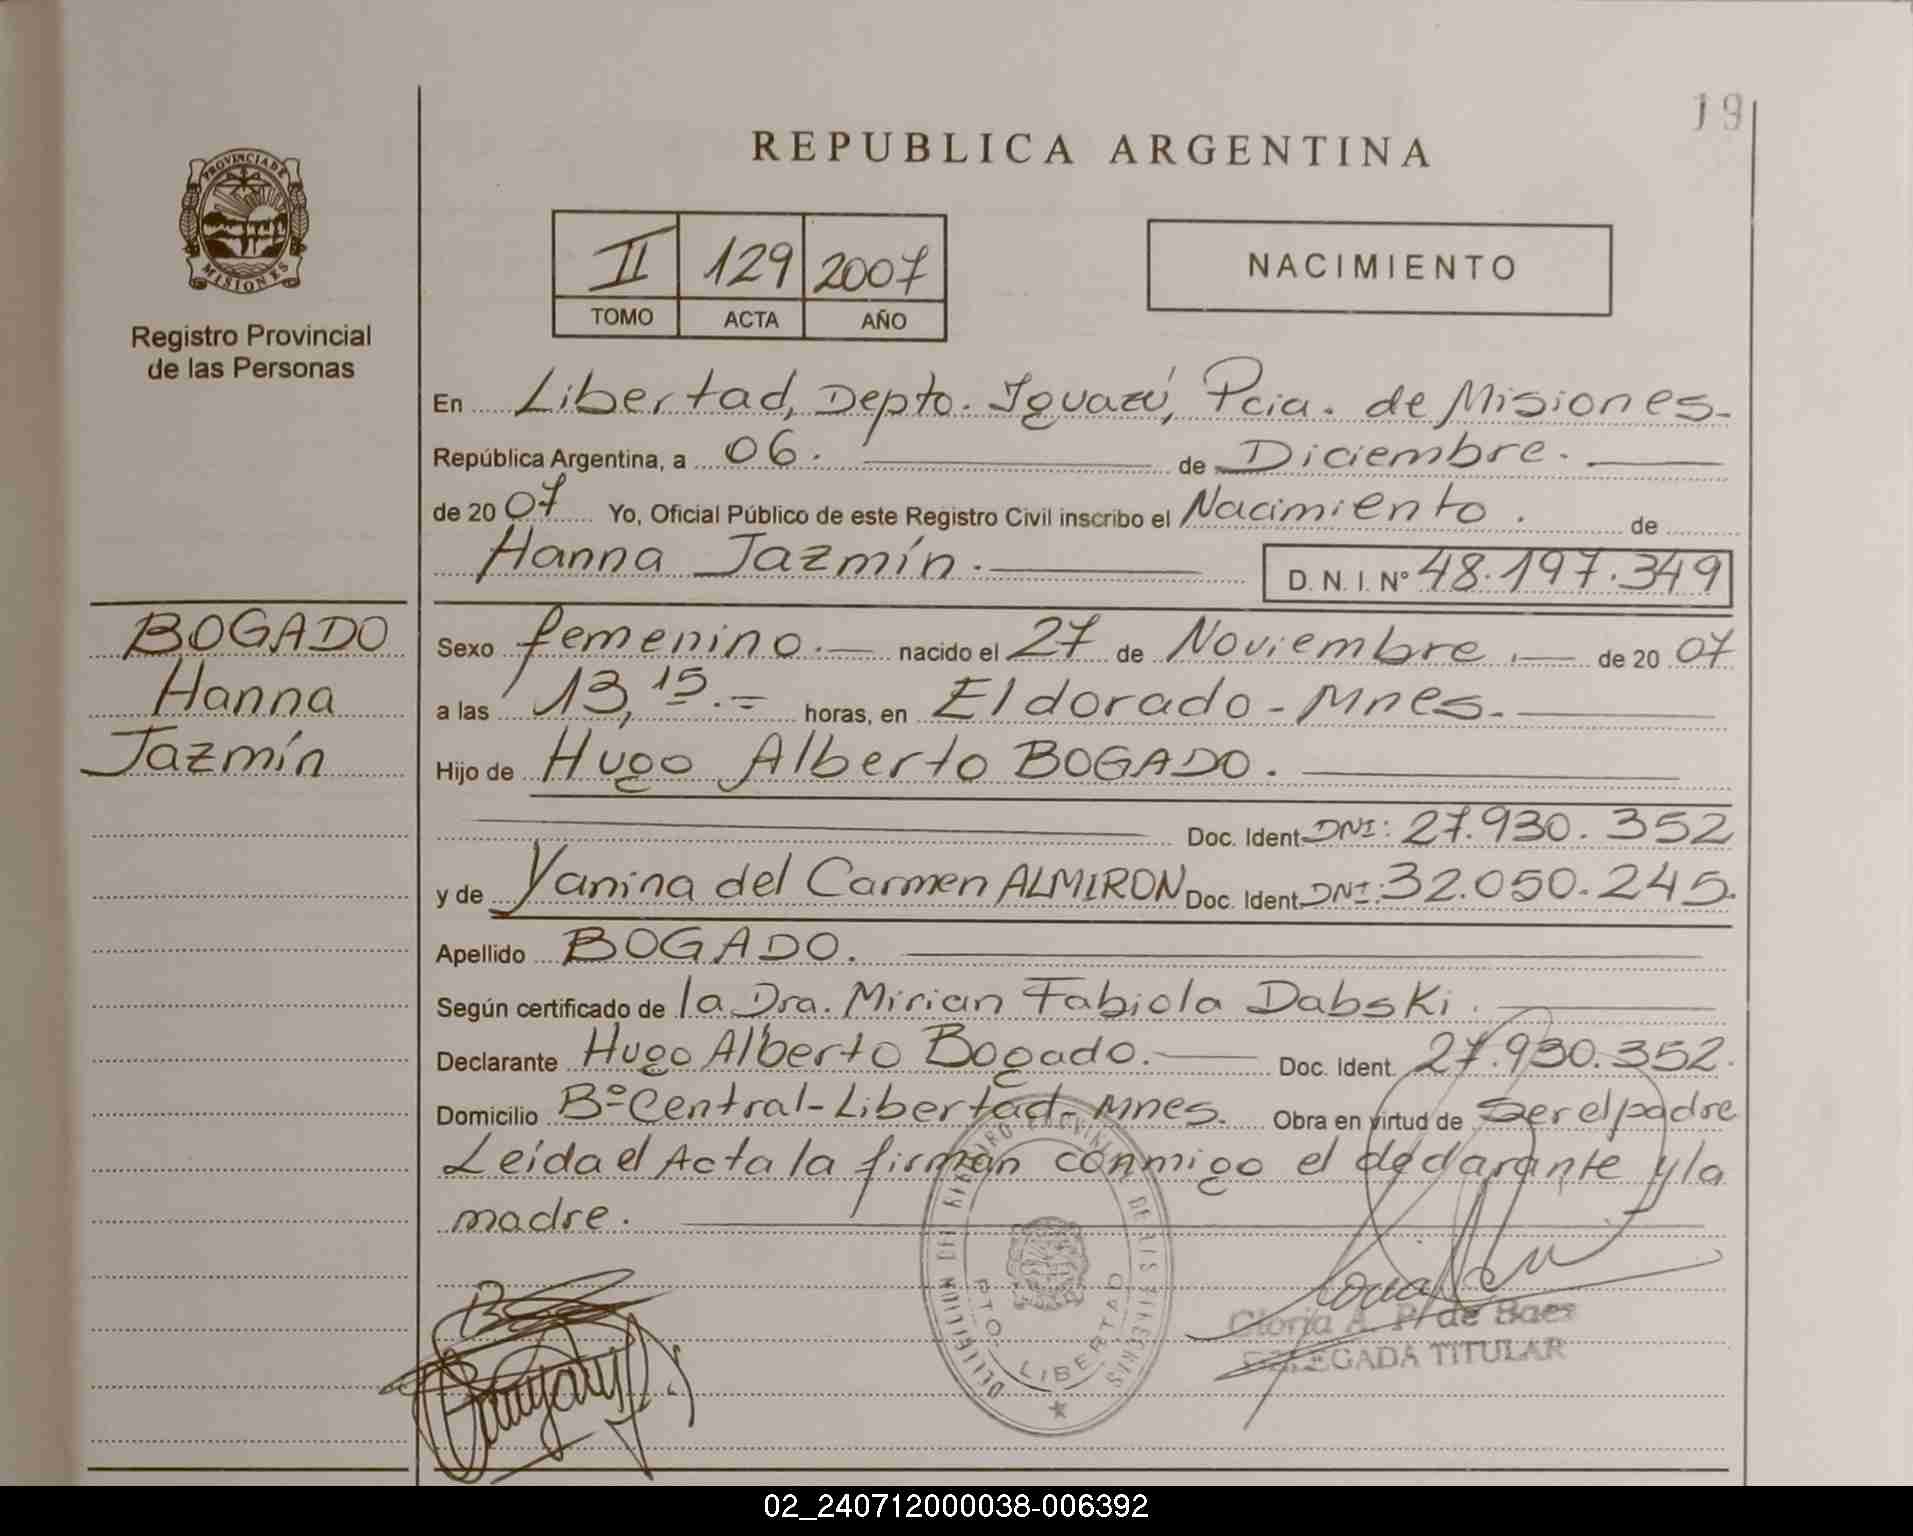 19
REPUBLICA ARGENTINA
PROVINCIA DE
MISIONES
Registro Provincial
de las Personas
II 129 2007
TOMO ACTA AÑO
NACIMIENTO
En Libertad, Depto. Iguazú, Pcia. de Misiones.
República Argentina, a 06. de Diciembre.
de 2007 Yo, Oficial Público de este Registro Civil inscribo el Nacimiento. de
Hanna Jazmín. D. N. I. Nº 48.197.349
BOGADO
Hanna
Jazmín
Sexo femenino. nacido el 27 de Noviembre. de 2007
a las 13,15. horas, en Eldorado - Mnes.
Hijo de Hugo Alberto BOGADO.
Doc. Ident. DNI: 27.930.352
y de Yanina del Carmen ALMIRON Doc. Ident. DNI: 32.050.245.
Apellido BOGADO.
Según certificado de la Dra. Mirian Fabiola Dabski.
Declarante Hugo Alberto Bogado. Doc. Ident. 27.930.352.
Domicilio Bº Central - Libertad - Mnes. Obra en virtud de ser el padre
Leída el Acta la firman conmigo el declarante y la
madre.
PTO. LIBERTAD
Gloria A. P. de Baes
DELEGADA TITULAR
02_240712000038-006392